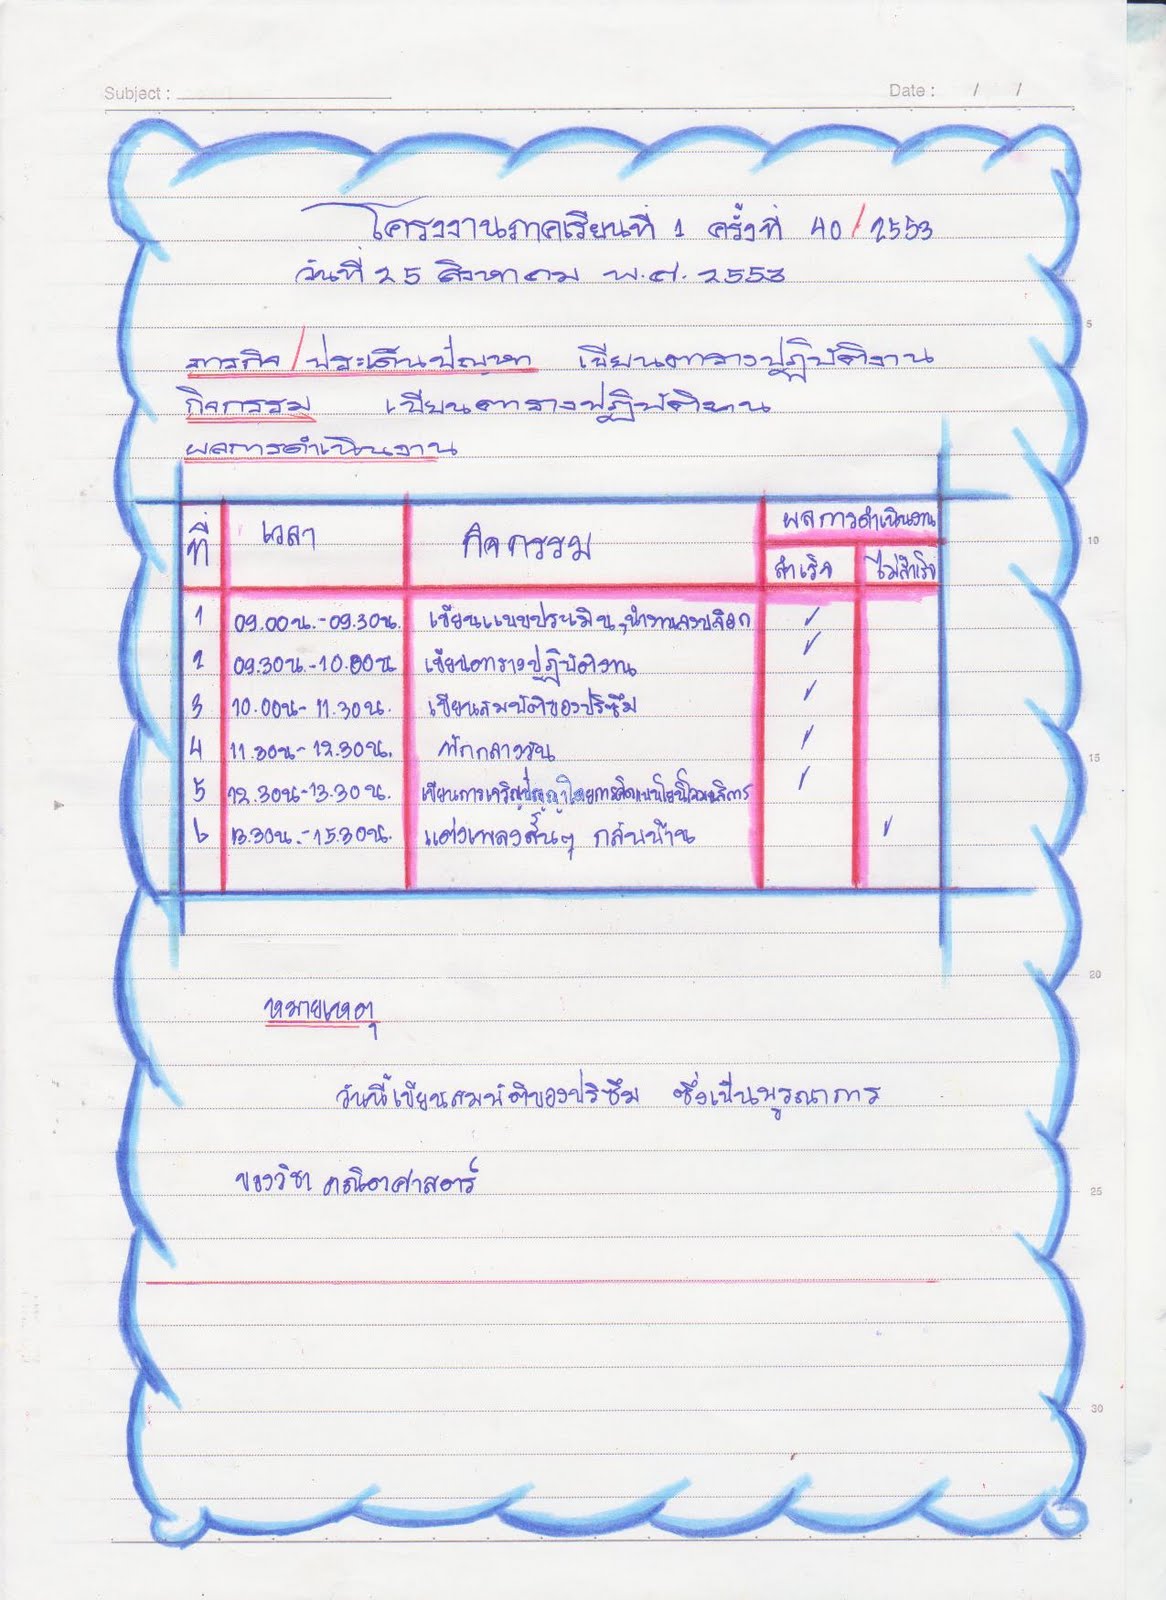 Subject : Date : / /
โครงงานภาคเรียนที่ 1 ครั้งที่ 40/2553
วันที่ 25 สิงหาคม พ.ศ. 2553
5
ภารกิจ/ประเด็นปัญหา เขียนตารางปฏิบัติงาน
กิจกรรม เขียนตารางปฏิบัติงาน
ผลการดำเนินงาน
ที่ เวลา กิจกรรม ผลการดำเนินงาน
10
สำเร็จ ไม่สำเร็จ
1 09.00น.-09.30น. เขียนแบบประเมิน,นำงานลงบล็อก ✓
2 09.30น.-10.00น เขียนตารางปฏิบัติงาน ✓
3 10.00น-11.30น. เขียนสมบัติของปริซึม ✓
4 11.30น-12.30น. พักกลางวัน ✓
15
5 12.30น-13.30น. เขียนการเจริญปัญญาโดยการคิดแบบโยนิโสมนสิการ ✓
6 13.30น.-15.30น. แต่งเพลงสั้นๆ กลับบ้าน ✓
20
หมายเหตุ
วันนี้เขียนสมบัติของปริซึม ซึ่งเป็นบูรณาการ
ของวิชา คณิตศาสตร์
25
30